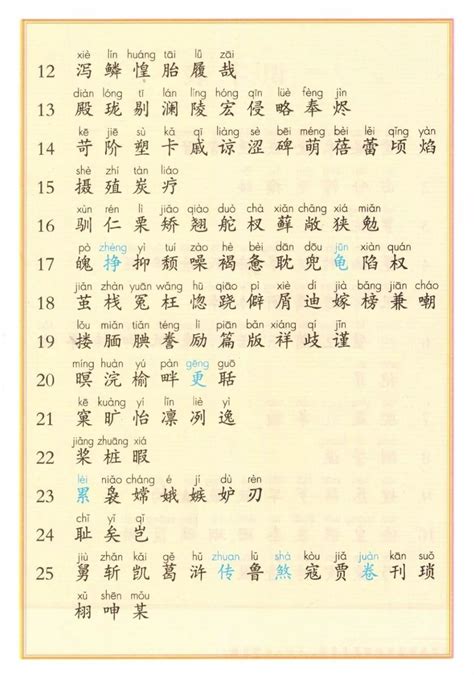 xiè lín huáng tāi lǚ zāi
12 泻 鳞 惶 胎 履 哉
diàn lóng tī lán líng hóng qīn lüè fèng jìn
13 殿 珑 剔 澜 陵 宏 侵 略 奉 烬
kē jiē sù kǎ qī liàng sè bēi méng bèi lěi qǐng yàn
14 苛 阶 塑 卡 戚 谅 涩 碑 萌 蓓 蕾 顷 焰
shè zhí tàn liáo
15 摄 殖 炭 疗
xùn rén lì jiǎo qiào duò chà xiǎn chǎng xiá miǎn
16 驯 仁 栗 矫 翘 舵 杈 藓 敞 狭 勉
pò zhèng yì tuí zào hè bèi dān dōu jūn xiàn quán
17 魄 挣 抑 颓 噪 褐 惫 耽 兜 龟 陷 权
jiǎn zhàn yuān wǎng hū qiāo pì xiè dí jià bǎng jiān cháo
18 茧 栈 冤 枉 惚 跷 僻 屑 迪 嫁 榜 兼 嘲
lǒu miǎn tiǎn téng lì piān bǎn xiáng qí jǐn
19 搂 腼 腆 誊 励 篇 版 祥 歧 谨
míng huàn yú pàn gēng guō
20 暝 浣 榆 畔 更 聒
kē kuàng yí lǐn liè yì
21 窠 旷 怡 凛 冽 逸
jiǎng zhuāng xiá
22 桨 桩 暇
léi niǎo cháng é jí dù rèn
23 累 袅 嫦 娥 嫉 妒 刃
chǐ yǐ qǐ
24 耻 矣 岂
jiù zhǎn kǎi gě hǔ zhuan lǔ shà kòu jiǎ juàn kān suǒ
25 舅 斩 凯 葛 浒 传 鲁 煞 寇 贾 卷 刊 琐
xǔ shēn mǒu
栩 呻 某